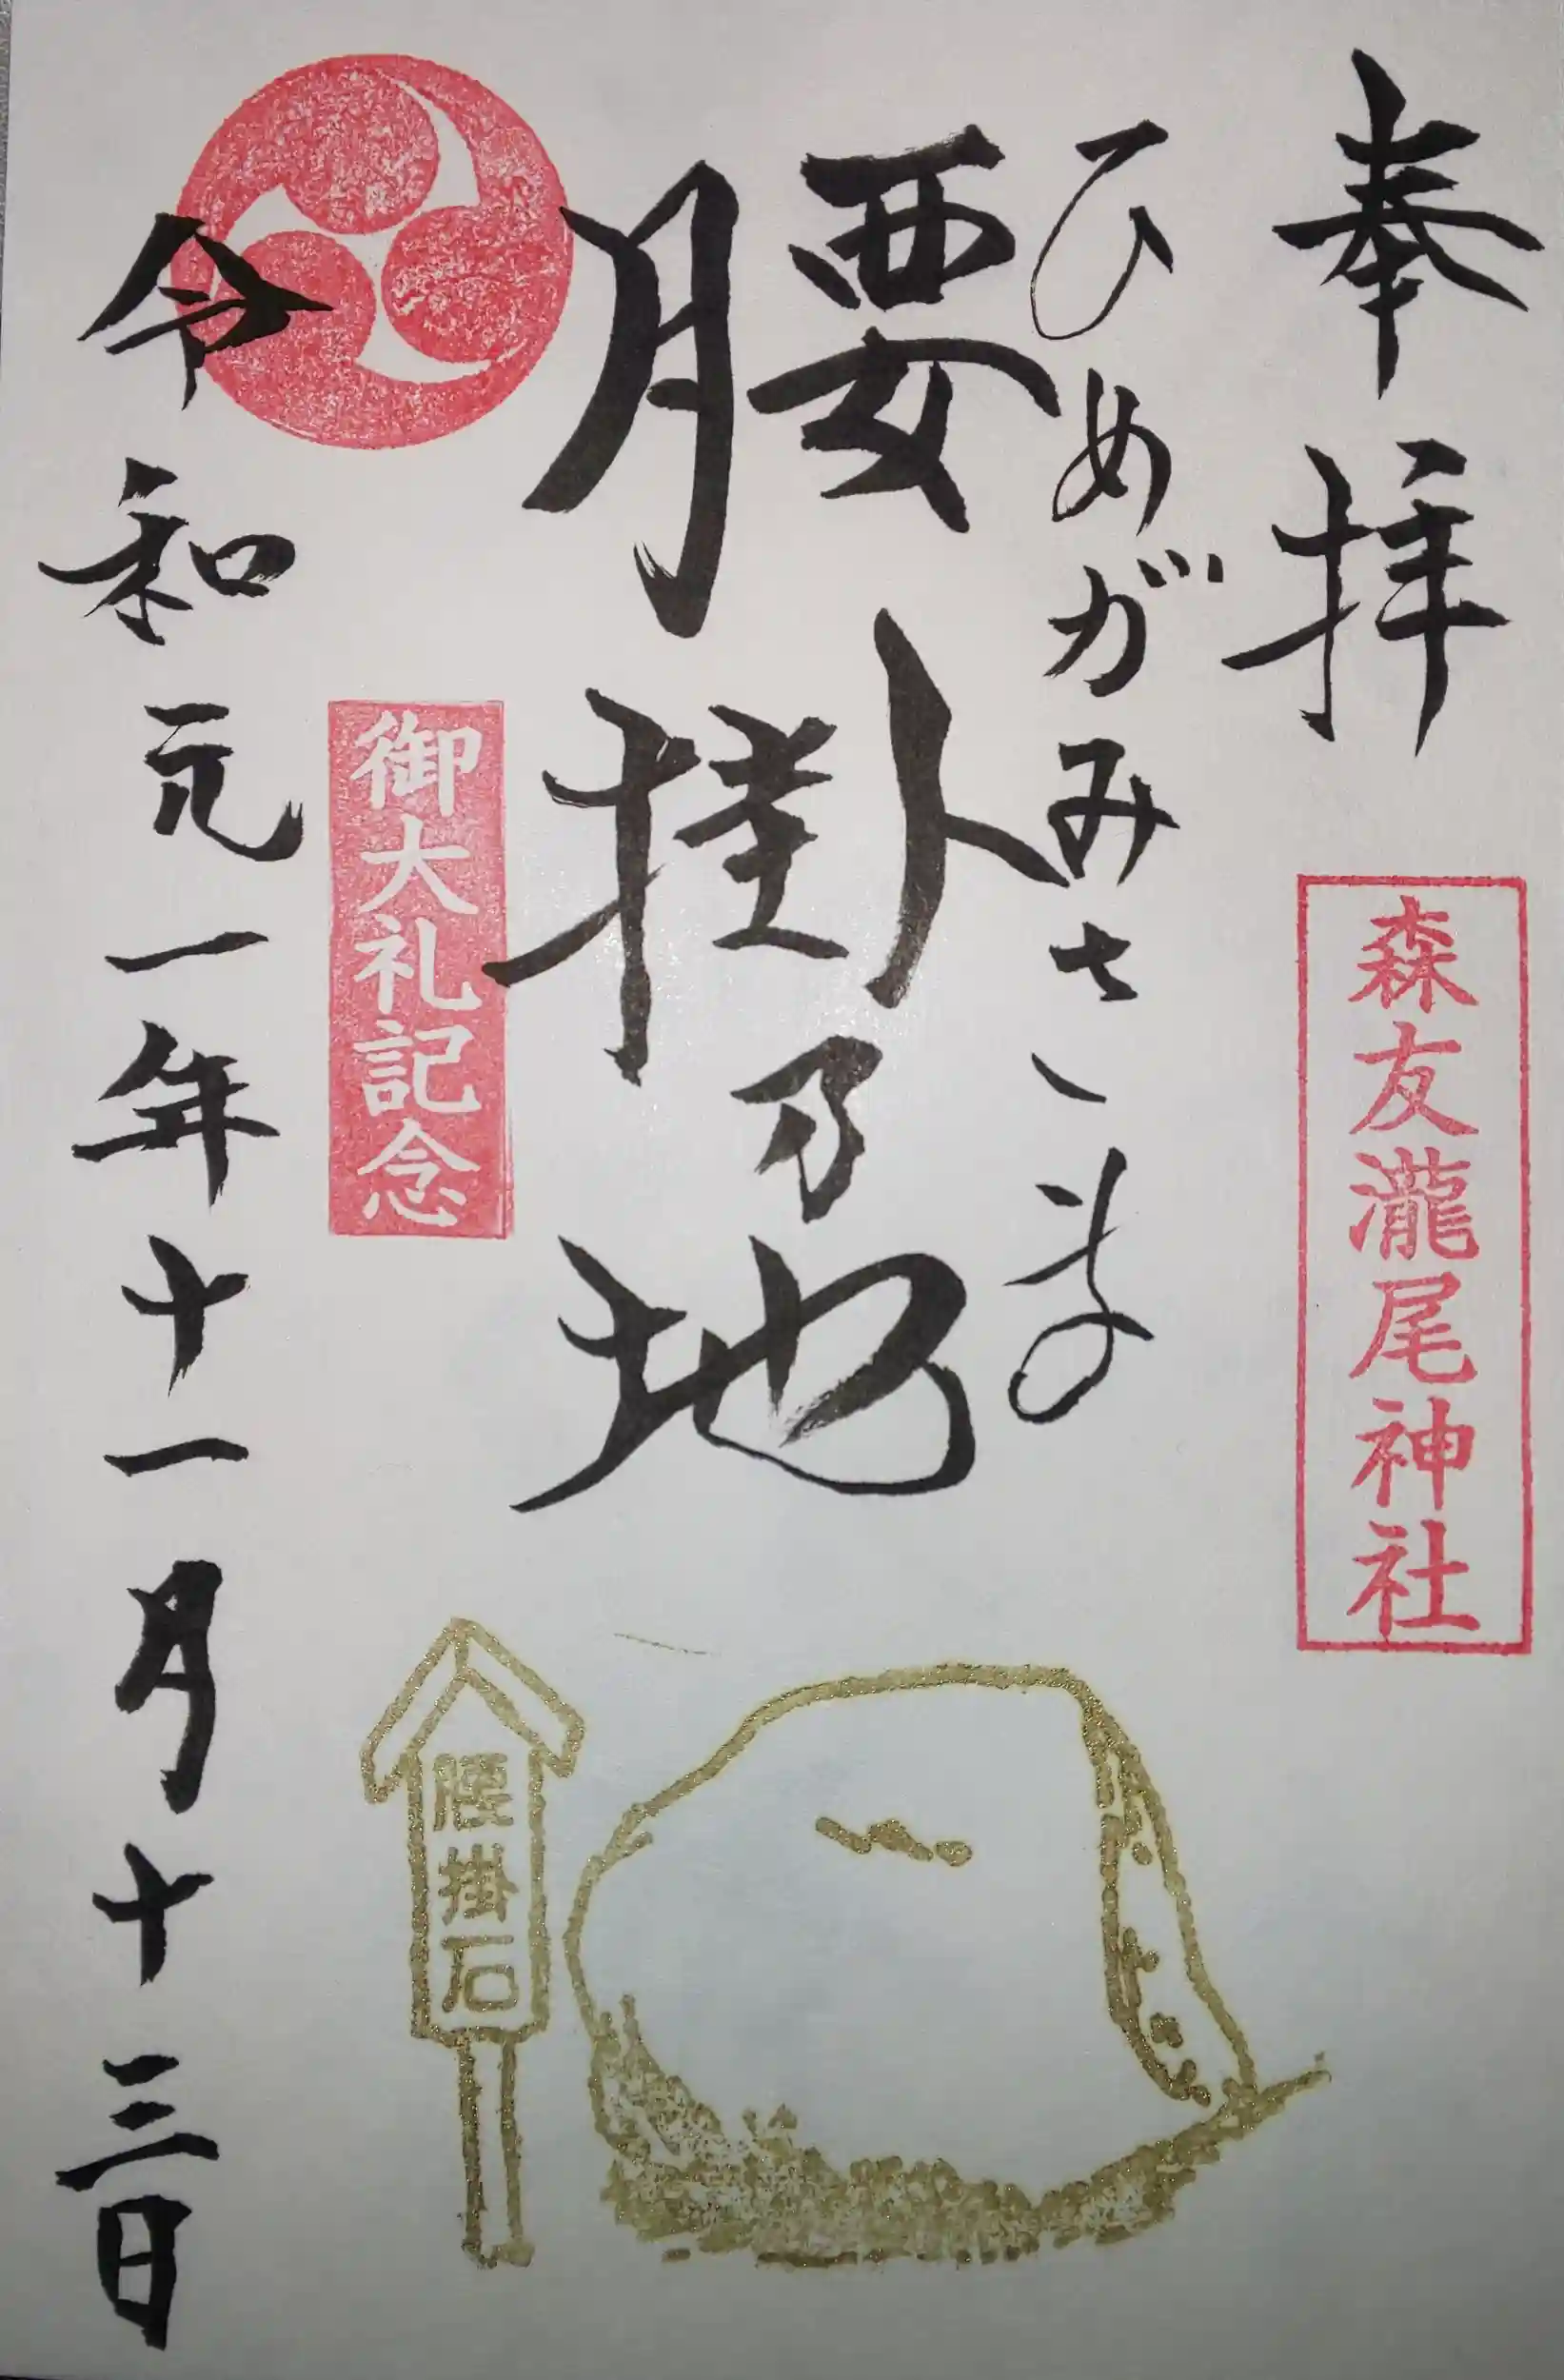 奉拝
森友瀧尾神社
ひめがみさま
腰掛乃地
御大礼記念
腰掛石
令和元一年十一月十三日